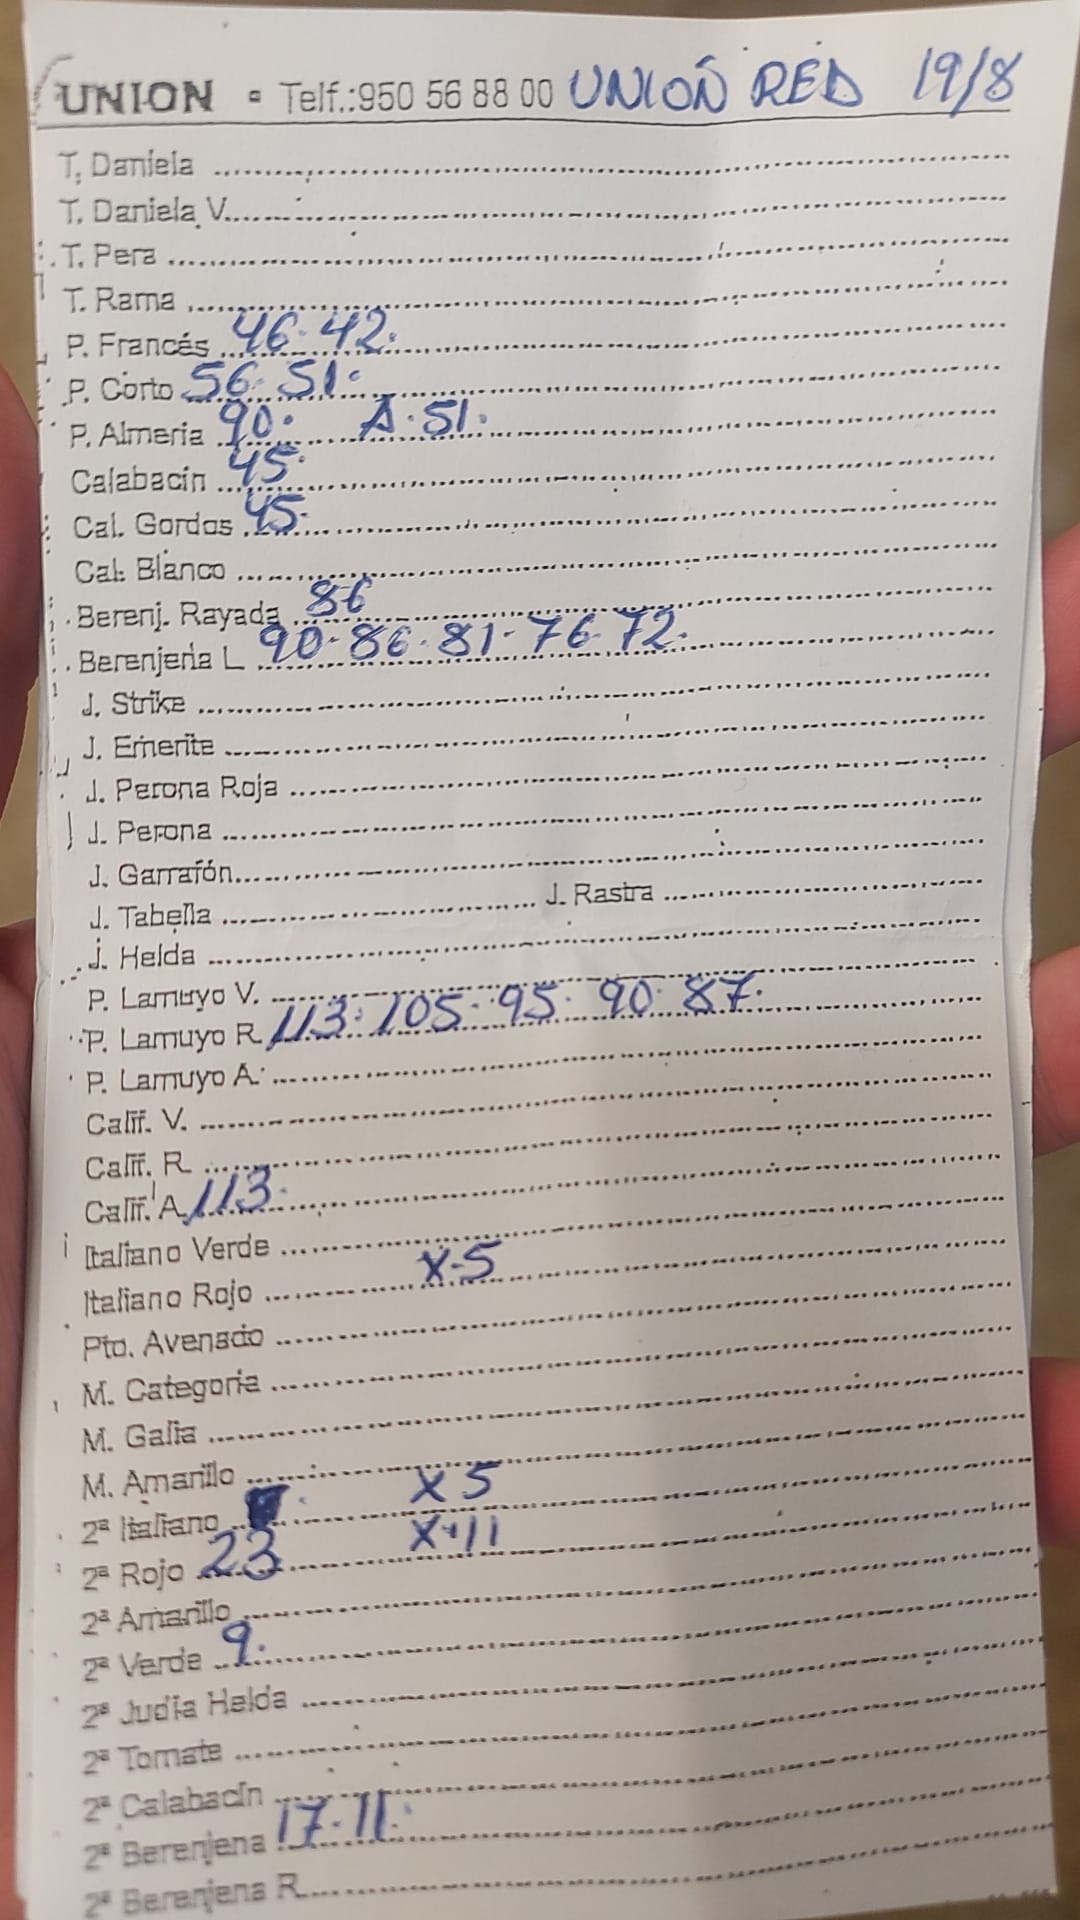 UNION - Telf.:950 56 88 00 UNION RED 19/8
T. Daniela
T. Daniela V.
T. Pera
T. Rama
P. Francés 46. 42.
P. Corto 56. 51.
P. Almeria 90. A. 51.
Calabacín 45.
Cal. Gordos 45.
Cal. Blanco
Berenj. Rayada 86
Berenjena L 90. 86. 81. 76. 72.
J. Strike
J. Emerite
J. Perona Roja
J. Perona
J. Garrafón
J. Tabella J. Rastra
J. Helda
P. Lamuyo V.
P. Lamuyo R. 113. 105. 95. 90. 87.
P. Lamuyo A.
Calif. V.
Calif. R.
Calif. A. 113.
Italiano Verde
Italiano Rojo X-5
Pto. Avenado
M. Categoría
M. Galia
M. Amarillo
2ª Italiano X 5
2ª Rojo 23 X.11
2ª Amarillo
2ª Verde 9.
2ª Judía Helda
2ª Tomate
2ª Calabacín
2ª Berenjena 17. 11.
2ª Berenjena R.